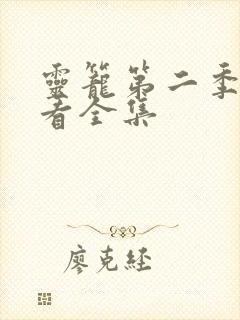 靈籠第二季
者全集
廖克經